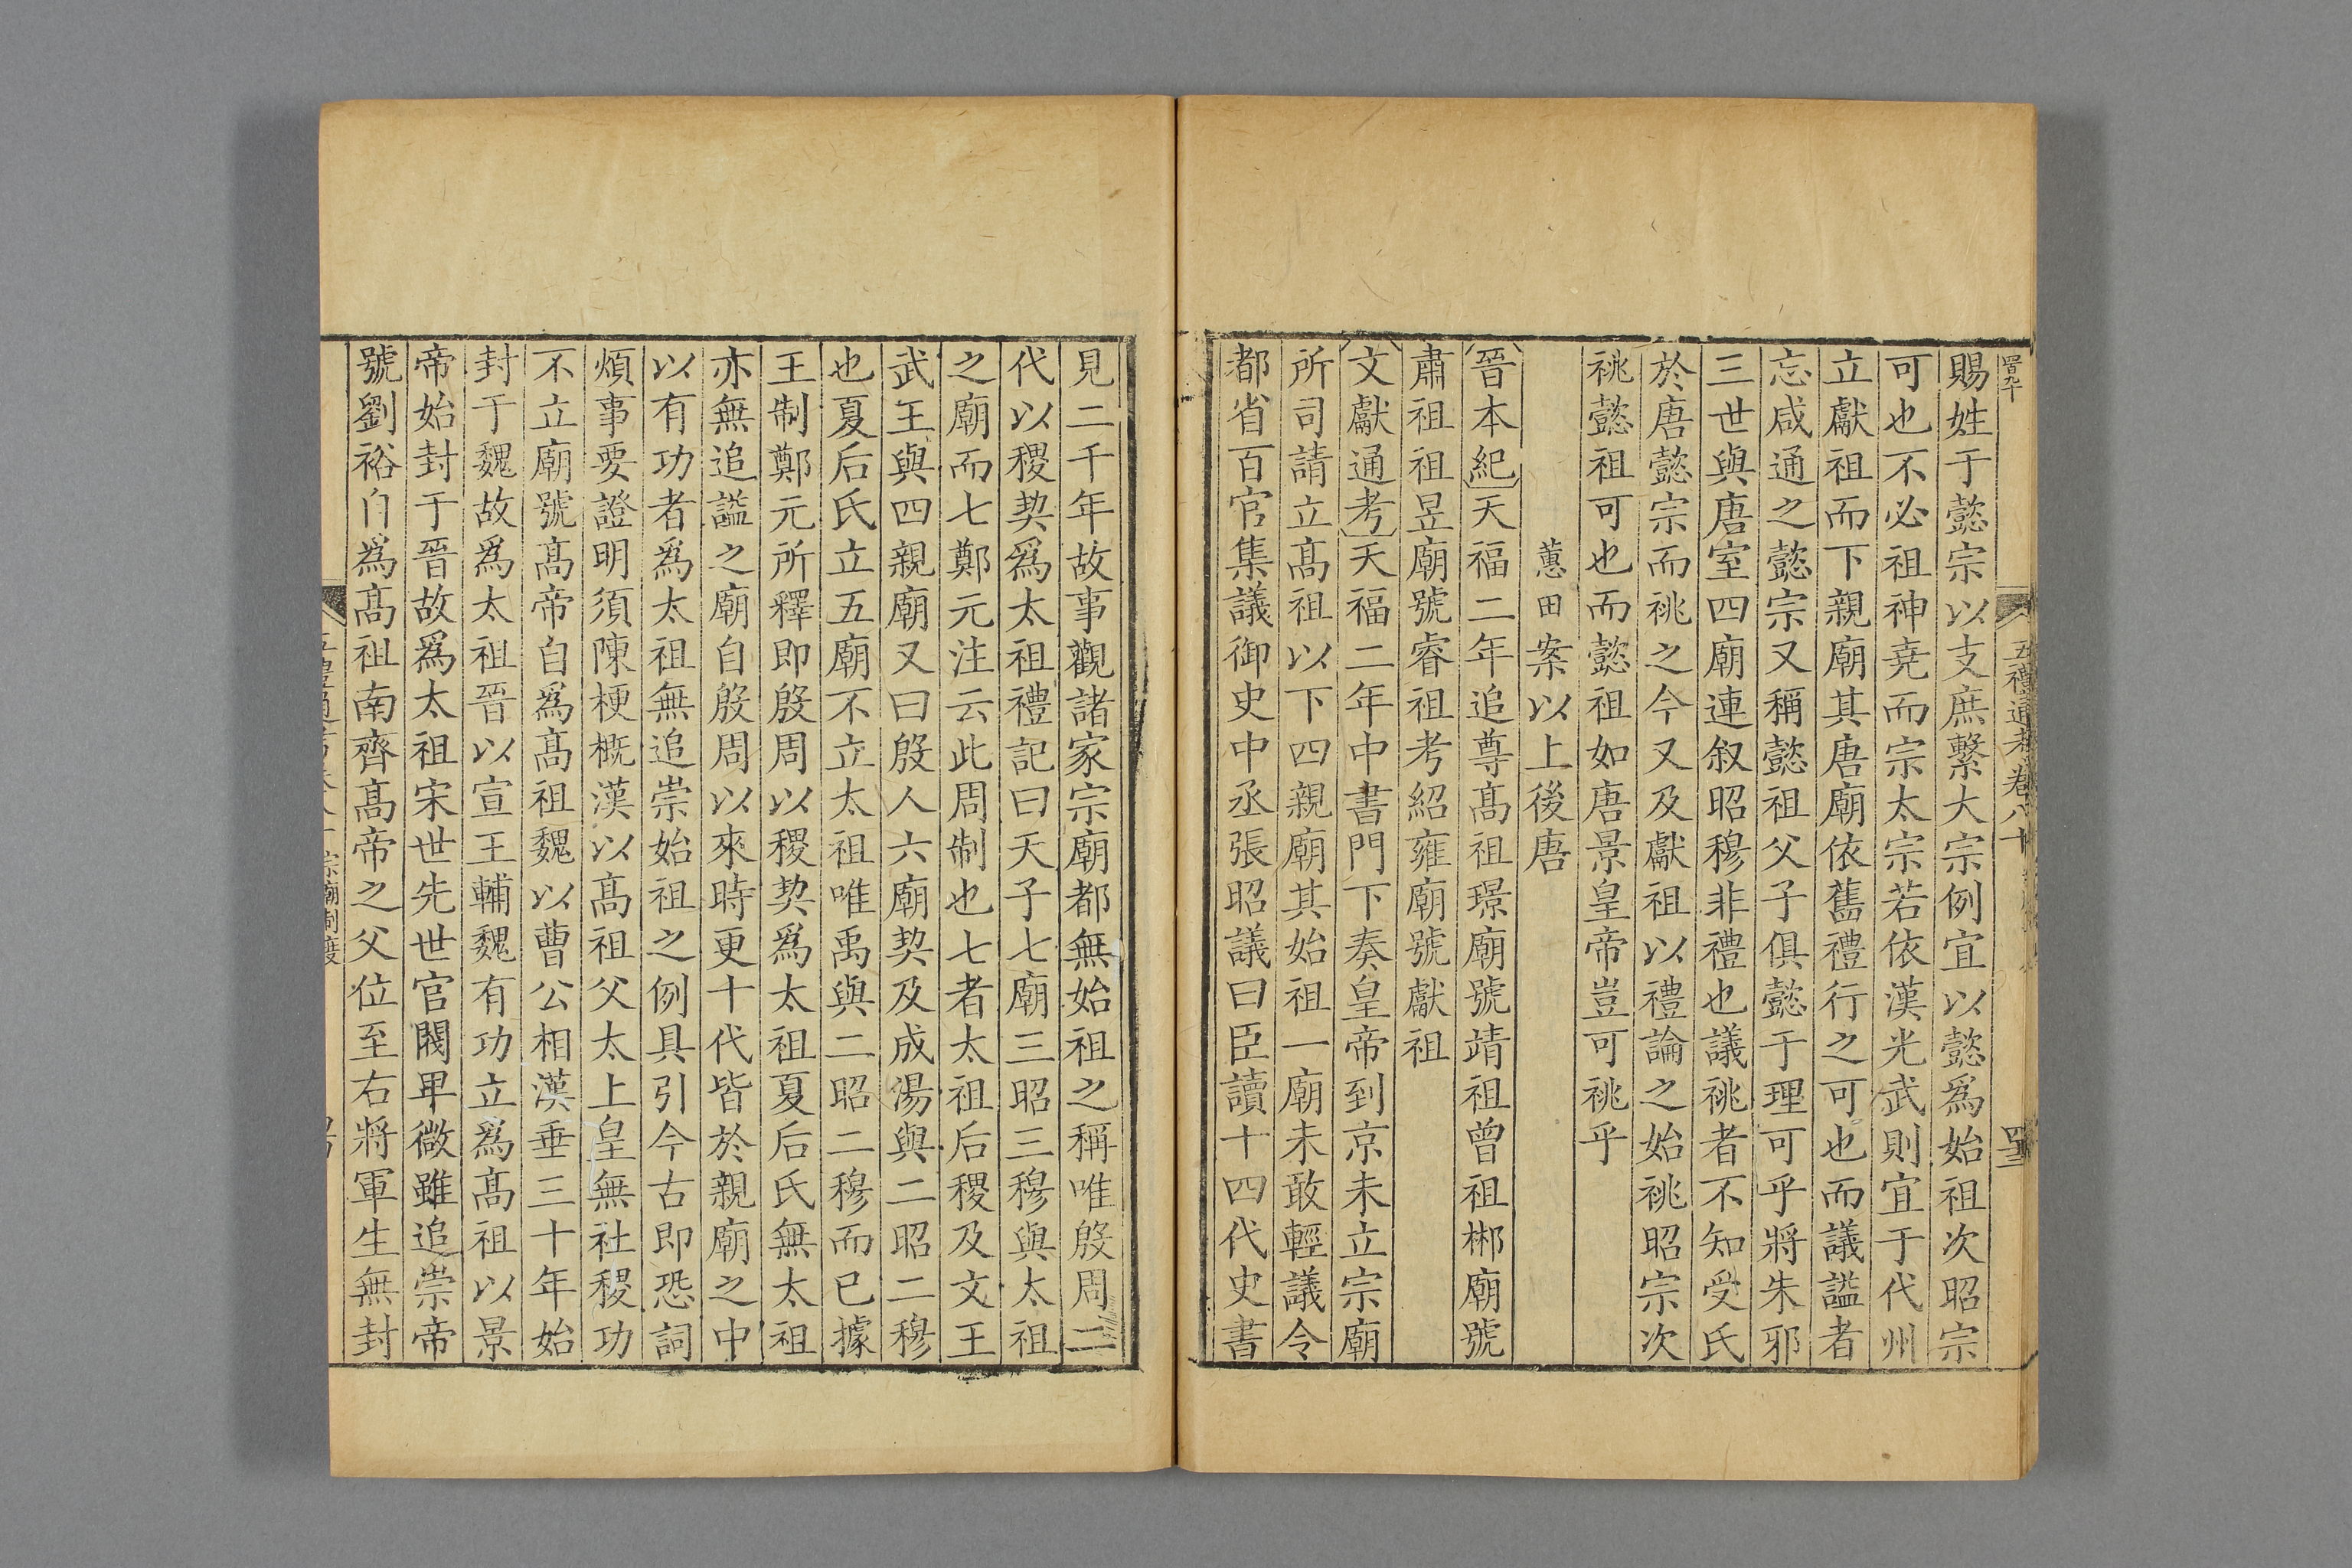 五禮通考卷八十
賜姓于懿宗以支庶繫大宗例宜以懿爲始祖次昭宗
可也不必祖神堯而宗太宗若依漢光武則宜于代州
立獻祖而下親廟其唐廟依舊禮行之可也而議諡者
忘咸通之懿宗又稱懿祖父子俱懿于理可乎將朱邪
三世與唐室四廟連叙昭穆非禮也議祧者不知受氏
於唐懿宗而祧之今又及獻祖以禮論之始祧昭宗次
祧懿祖可也而懿祖如唐景皇帝豈可祧乎
蕙田案以上後唐
晉本紀天福二年追尊髙祖璟廟號靖祖曾祖郴廟號
肅祖祖昱廟號睿祖考紹雍廟號獻祖
文獻通考天福二年中書門下奏皇帝到京未立宗廟
所司請立髙祖以下四親廟其始祖一廟未敢輕議令
都省百官集議御史中丞張昭議曰臣讀十四代史書
見二千年故事觀諸家宗廟都無始祖之稱唯殷周二
代以稷契爲太祖禮記曰天子七廟三昭三穆與太祖
之廟而七鄭元注云此周制也七者太祖后稷及文王
武王與四親廟又曰殷人六廟契及成湯與二昭二穆
也夏后氏立五廟不立太祖唯禹與二昭二穆而已據
王制鄭元所釋即殷周以稷契爲太祖夏后氏無太祖
亦無追諡之廟自殷周以來時更十代皆於親廟之中
以有功者爲太祖無追崇始祖之例具引今古即恐詞
煩事要證明須陳梗概漢以髙祖父太上皇無社稷功
不立廟號髙帝自爲髙祖魏以曹公相漢垂三十年始
封于魏故爲太祖晉以宣王輔魏有功立爲髙祖以景
帝始封于晉故爲太祖宋世先世官閥卑微雖追崇帝
號劉裕自爲髙祖南齊髙帝之父位至右將軍生無封
宗廟制度